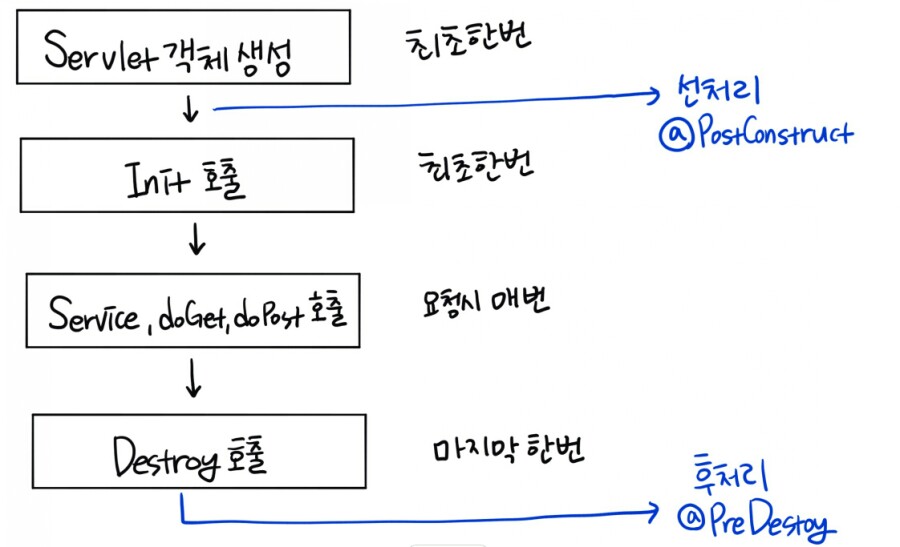 Servlet 객체 생성
최초한번
선처리
@PostConstruct
Init 호출
최초한번
Service, doGet, doPost 호출
요청시 매번
Destroy 호출
마지막 한번
후처리
@PreDestoy